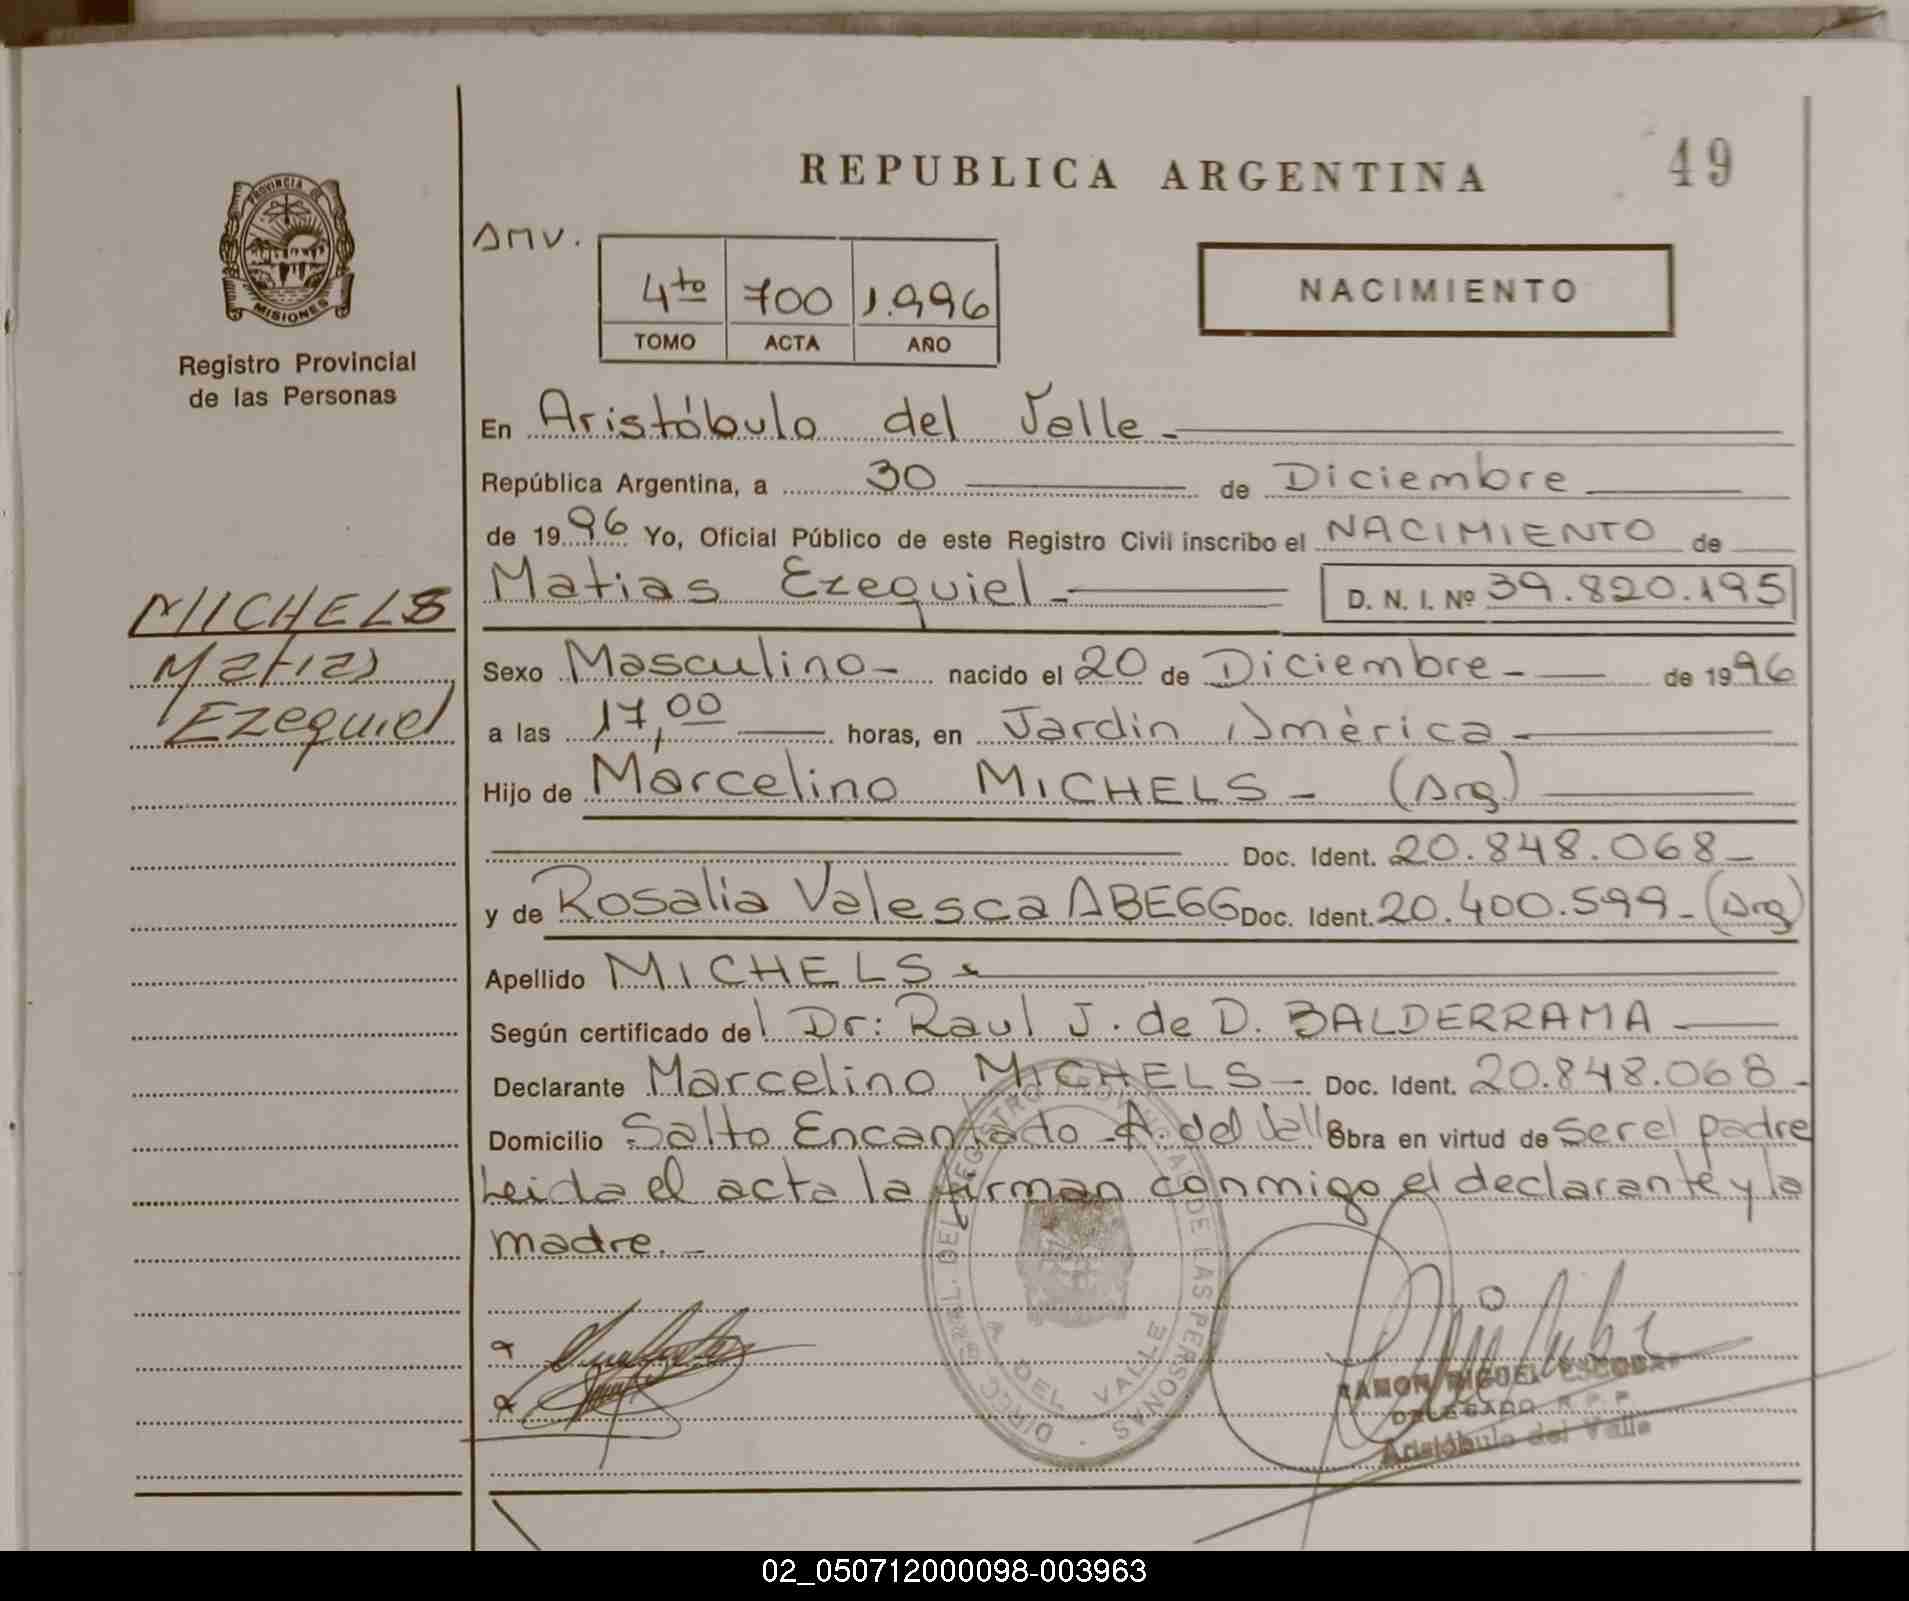 REPUBLICA ARGENTINA
49
PROVINCIA DE
MISIONES
Registro Provincial
de las Personas
AMV.
4to 700 1.996
TOMO ACTA AÑO
NACIMIENTO
En Aristóbulo del Valle.-
República Argentina, a 30 de Diciembre
de 1996 Yo, Oficial Público de este Registro Civil inscribo el NACIMIENTO de
MICHELS
Matias
Ezequiel
Matias Ezequiel.- D. N. I. Nº 39.820.195
Sexo Masculino- nacido el 20 de Diciembre- de 1996
a las 17,00 horas, en Jardín América-
Hijo de Marcelino MICHELS- (Arg)
Doc. Ident. 20.848.068-
y de Rosalia Valesca ABEGG Doc. Ident. 20.400.599-(Arg)
Apellido MICHELS-
Según certificado del Dr: Raul J. de D. BALDERRAMA
Declarante Marcelino MICHELS- Doc. Ident. 20.848.068-
Domicilio Salto Encantado-A. del Valle Obra en virtud de ser el padre
Leida el acta la firman conmigo el declarante y la
madre.-
DIREC. GRAL. DEL REGISTRO PROVINCIAL DE LAS PERSONAS
A. DEL VALLE
RAMON MIGUEL ESCOBAR
DELEGADO R.P.P.
Aristóbulo del Valle
02_050712000098-003963